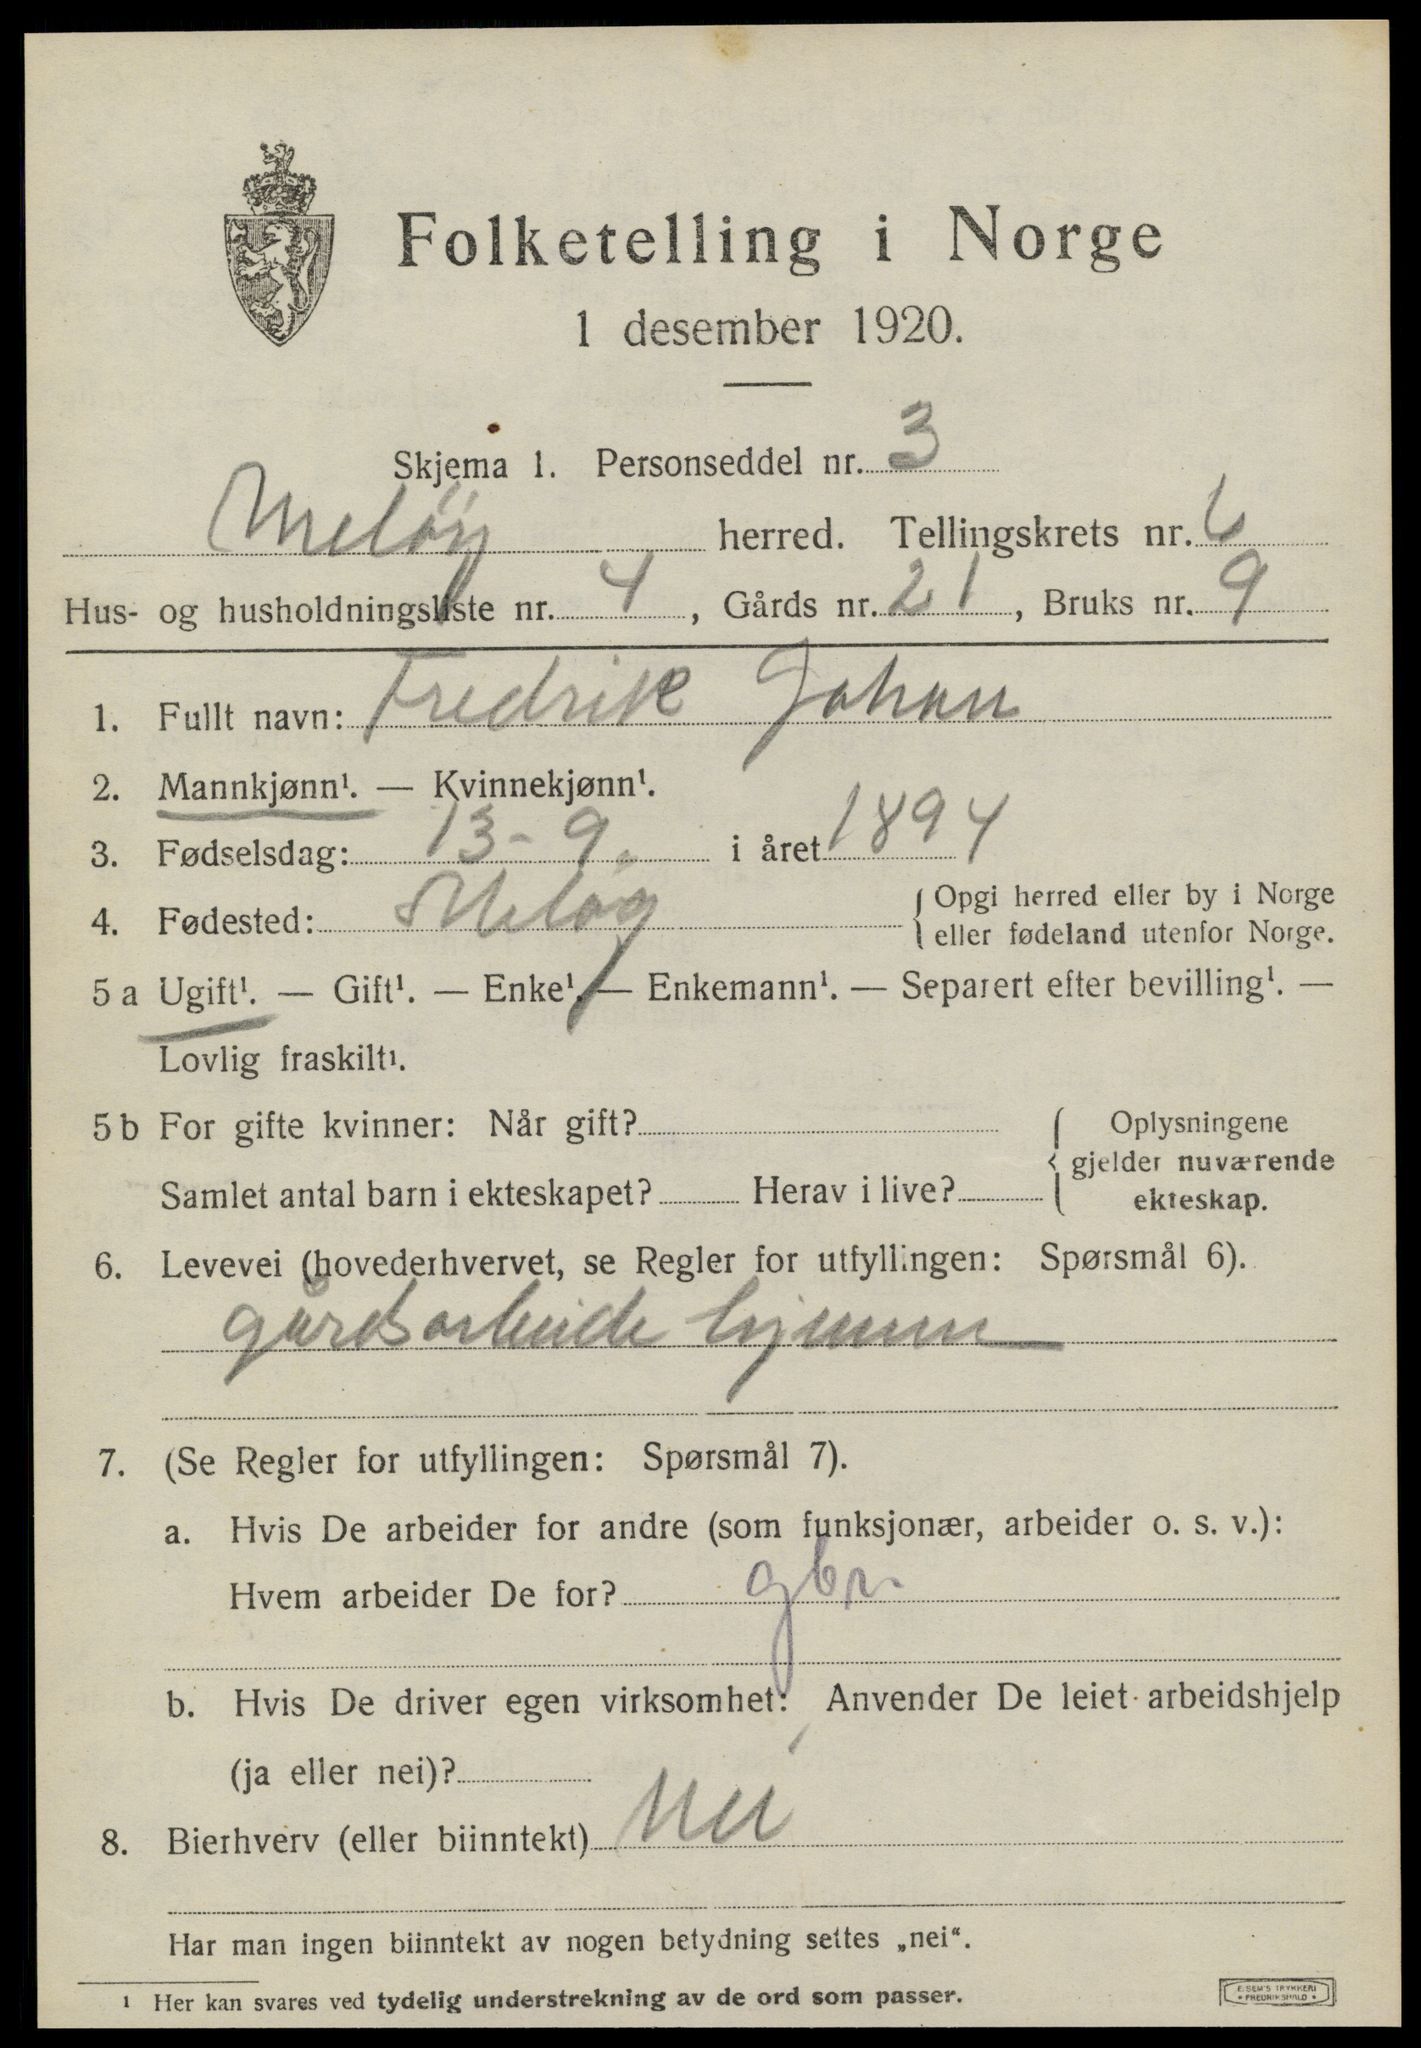 Folketelling i Norge
1 desember 1920.
Skjema 1. Personseddel nr. 3
Meløy herred. Tellingskrets nr. 6
Hus- og husholdningsliste nr. 4, Gårds nr. 21, Bruks nr. 9
1. Fullt navn: Fredrik Johan
2. Mannkjønn¹. — Kvinnekjønn¹.
3. Fødselsdag: 13-9. i året 1894
4. Fødested: Meløy {Opgi herred eller by i Norge
eller fødeland utenfor Norge.
5 a Ugift¹. — Gift¹. — Enke¹. — Enkemann¹. — Separert efter bevilling¹. —
Lovlig fraskilt¹.
5 b For gifte kvinner: Når gift?
Samlet antal barn i ekteskapet? Herav i live?
{ Oplysningene
gjelder nuværende
ekteskap.
6. Levevei (hovederhvervet, se Regler for utfyllingen: Spørsmål 6).
gårdsarbeide hjemme
7. (Se Regler for utfyllingen: Spørsmål 7).
a. Hvis De arbeider for andre (som funksjonær, arbeider o. s. v.):
Hvem arbeider De for? gbr.
b. Hvis De driver egen virksomhet: Anvender De leiet arbeidshjelp
(ja eller nei)?
8. Bierhverv (eller biinntekt) Nei
Har man ingen biinntekt av nogen betydning settes „nei“.
¹ Her kan svares ved tydelig understrekning av de ord som passer.
E. SEM'S TRYKKERI
• FREDRIKSHALD •